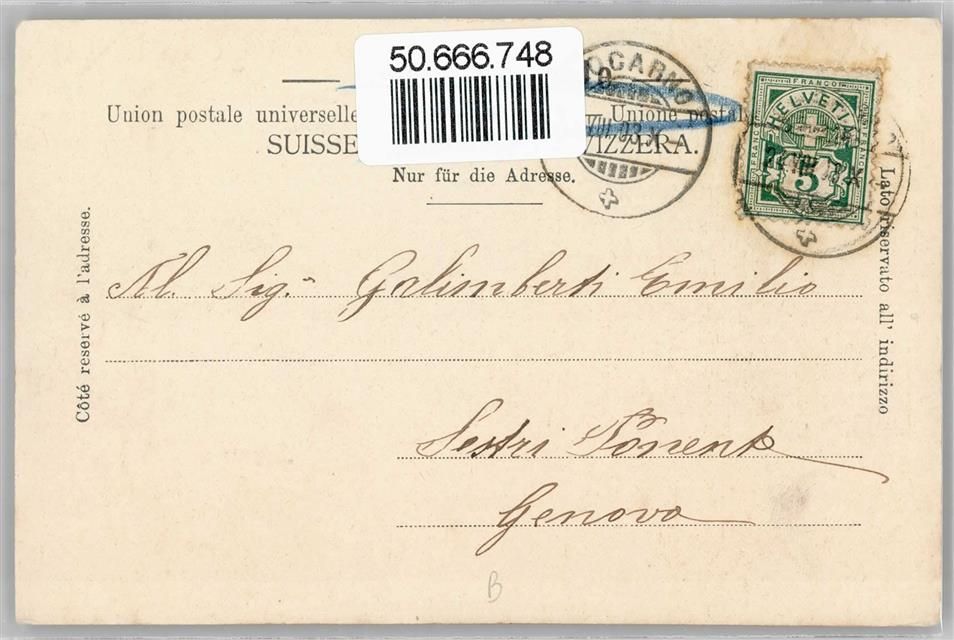 50.666.748
Union postale universelle
Unione postal
SUISSE
VIZZERA.
Nur für die Adresse.
Côté reservé à l'adresse.
Lato riservato all' indirizzo
OCARNO
VIII 03
FRANCO
HELVETIA
5
Al. Sig.- Galimberti Emilio
Sestri Ponente
Genova
B